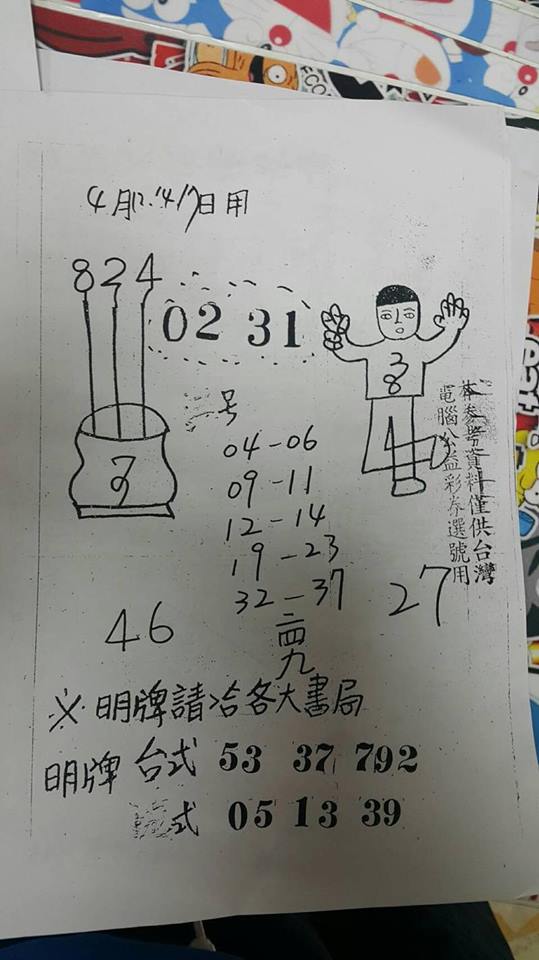 4月12.14.17日用
824
02 31
号
04-06
09-11
12-14
19-23
32-37
二四九
46
27
本參考資料僅供台灣
電腦公益彩券選號用
※明牌請洽各大書局
明牌 台式 53 37 792
式 05 13 39